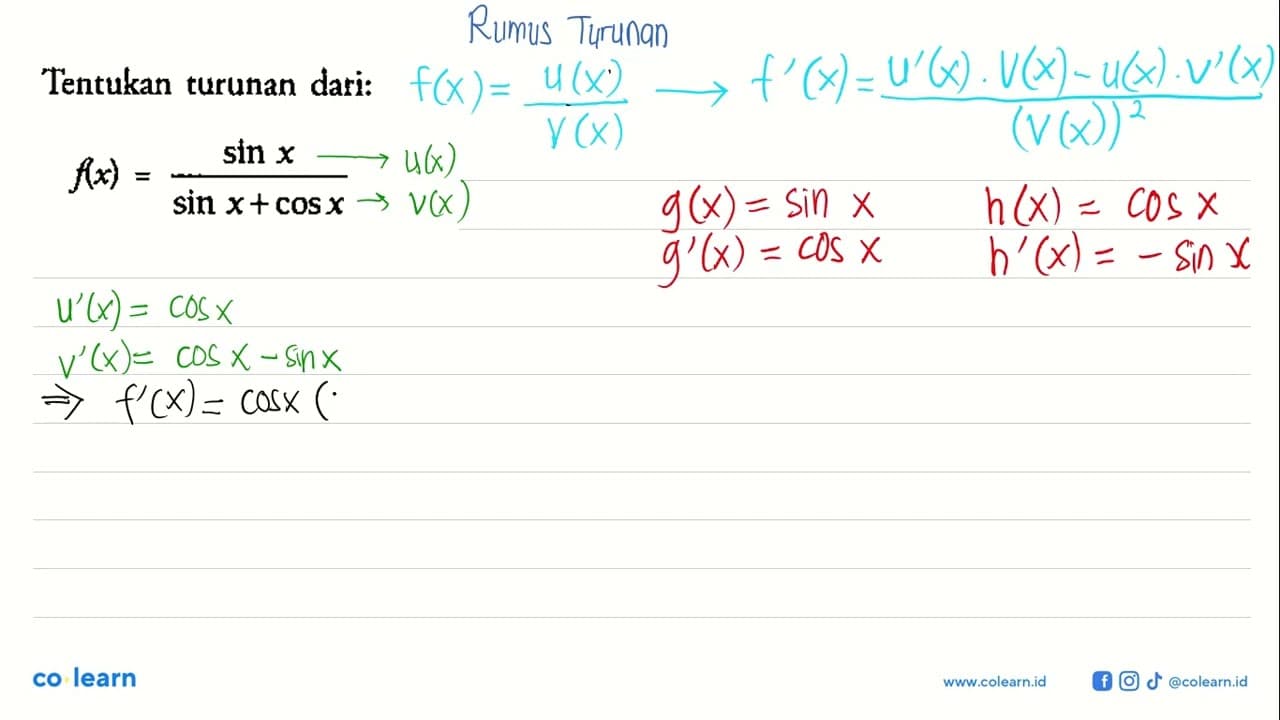 Rumus Turunan
Tentukan turunan dari:
f(x) = u(x) / v(x) → f'(x) = u'(x) . v(x) - u(x) . v'(x) / (v(x))²
f(x) = sin x / sin x + cos x
sin x → u(x)
sin x + cos x → v(x)
g(x) = sin x
g'(x) = cos x
h(x) = cos x
h'(x) = - sin x
u'(x) = cos x
v'(x) = cos x - sin x
⇒ f'(x) = cos x (
co learn
www.colearn.id
@colearn.id